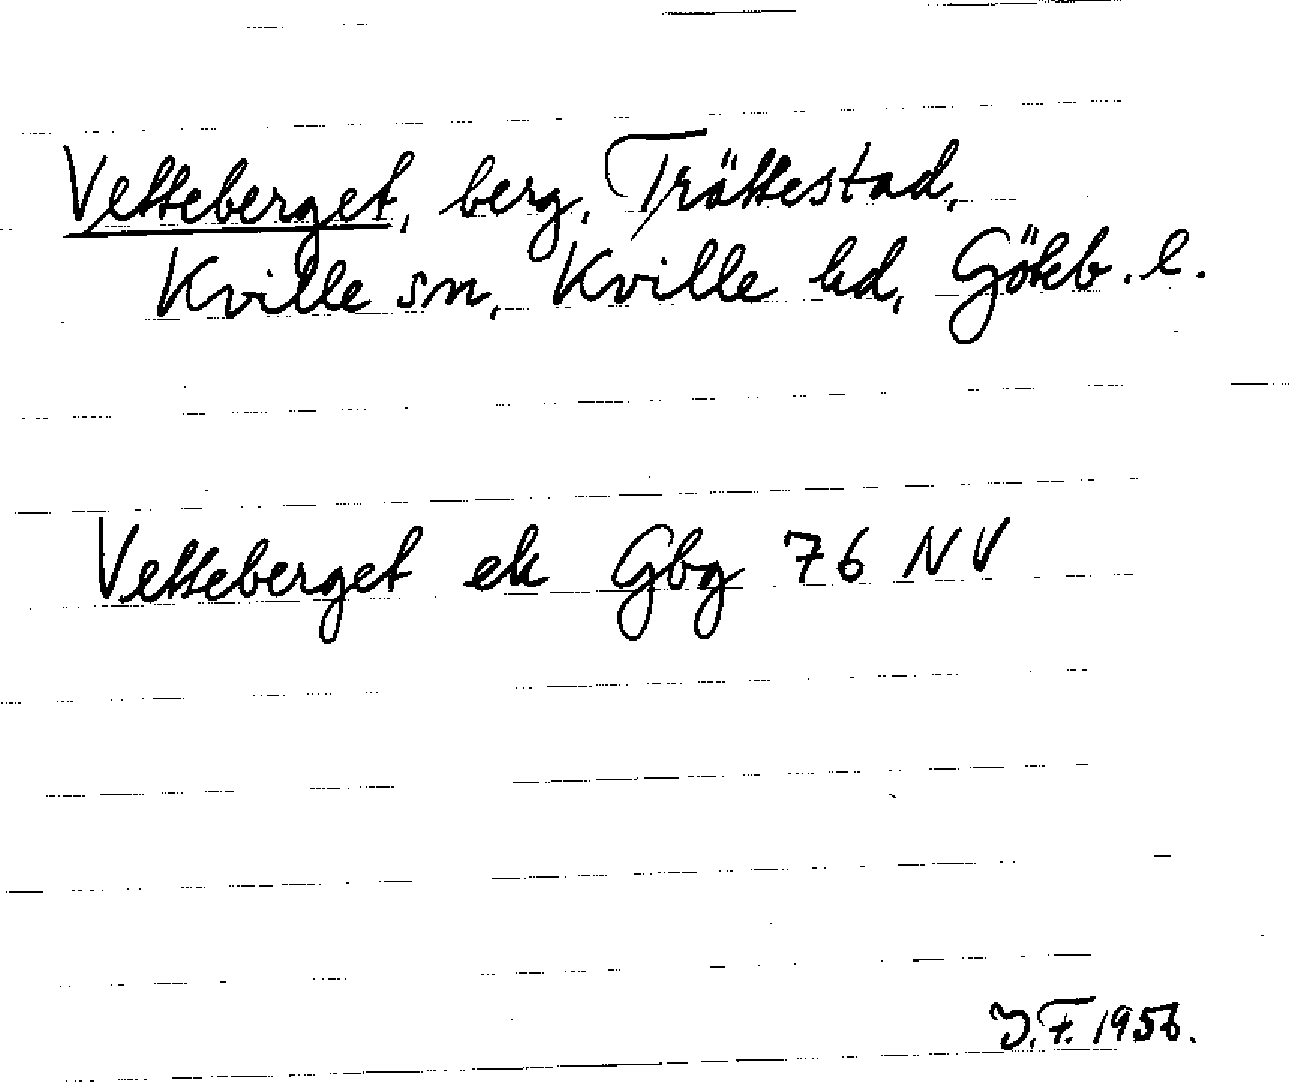 Vetteberget, berg, Trättestad,
Kville sn, Kville hd, Göteb. l.
Vetteberget ek Gbg 76 NV
J.F. 1956.